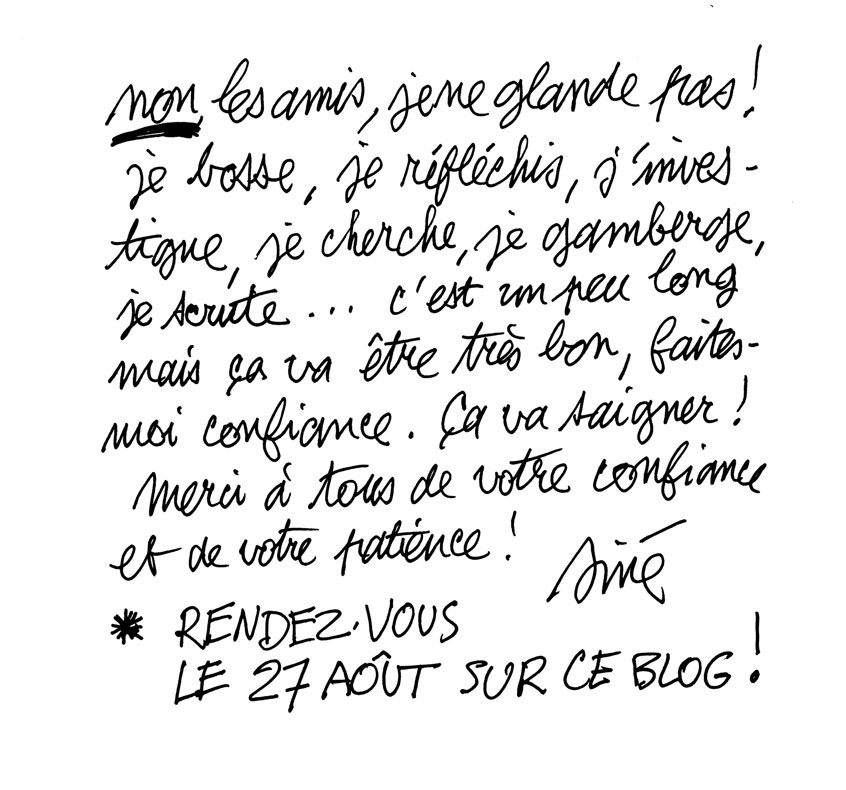 non les amis, je ne glande pas !
je bosse, je réfléchis, j'inves-
tigue, je cherche, je gamberge,
je scrute ... c'est un peu long
mais ça va être très bon, faites-
moi confiance. Ça va saigner !
Merci à tous de votre confiance
et de votre patience !
Siné
* RENDEZ-VOUS
LE 27 AOÛT SUR CE BLOG !